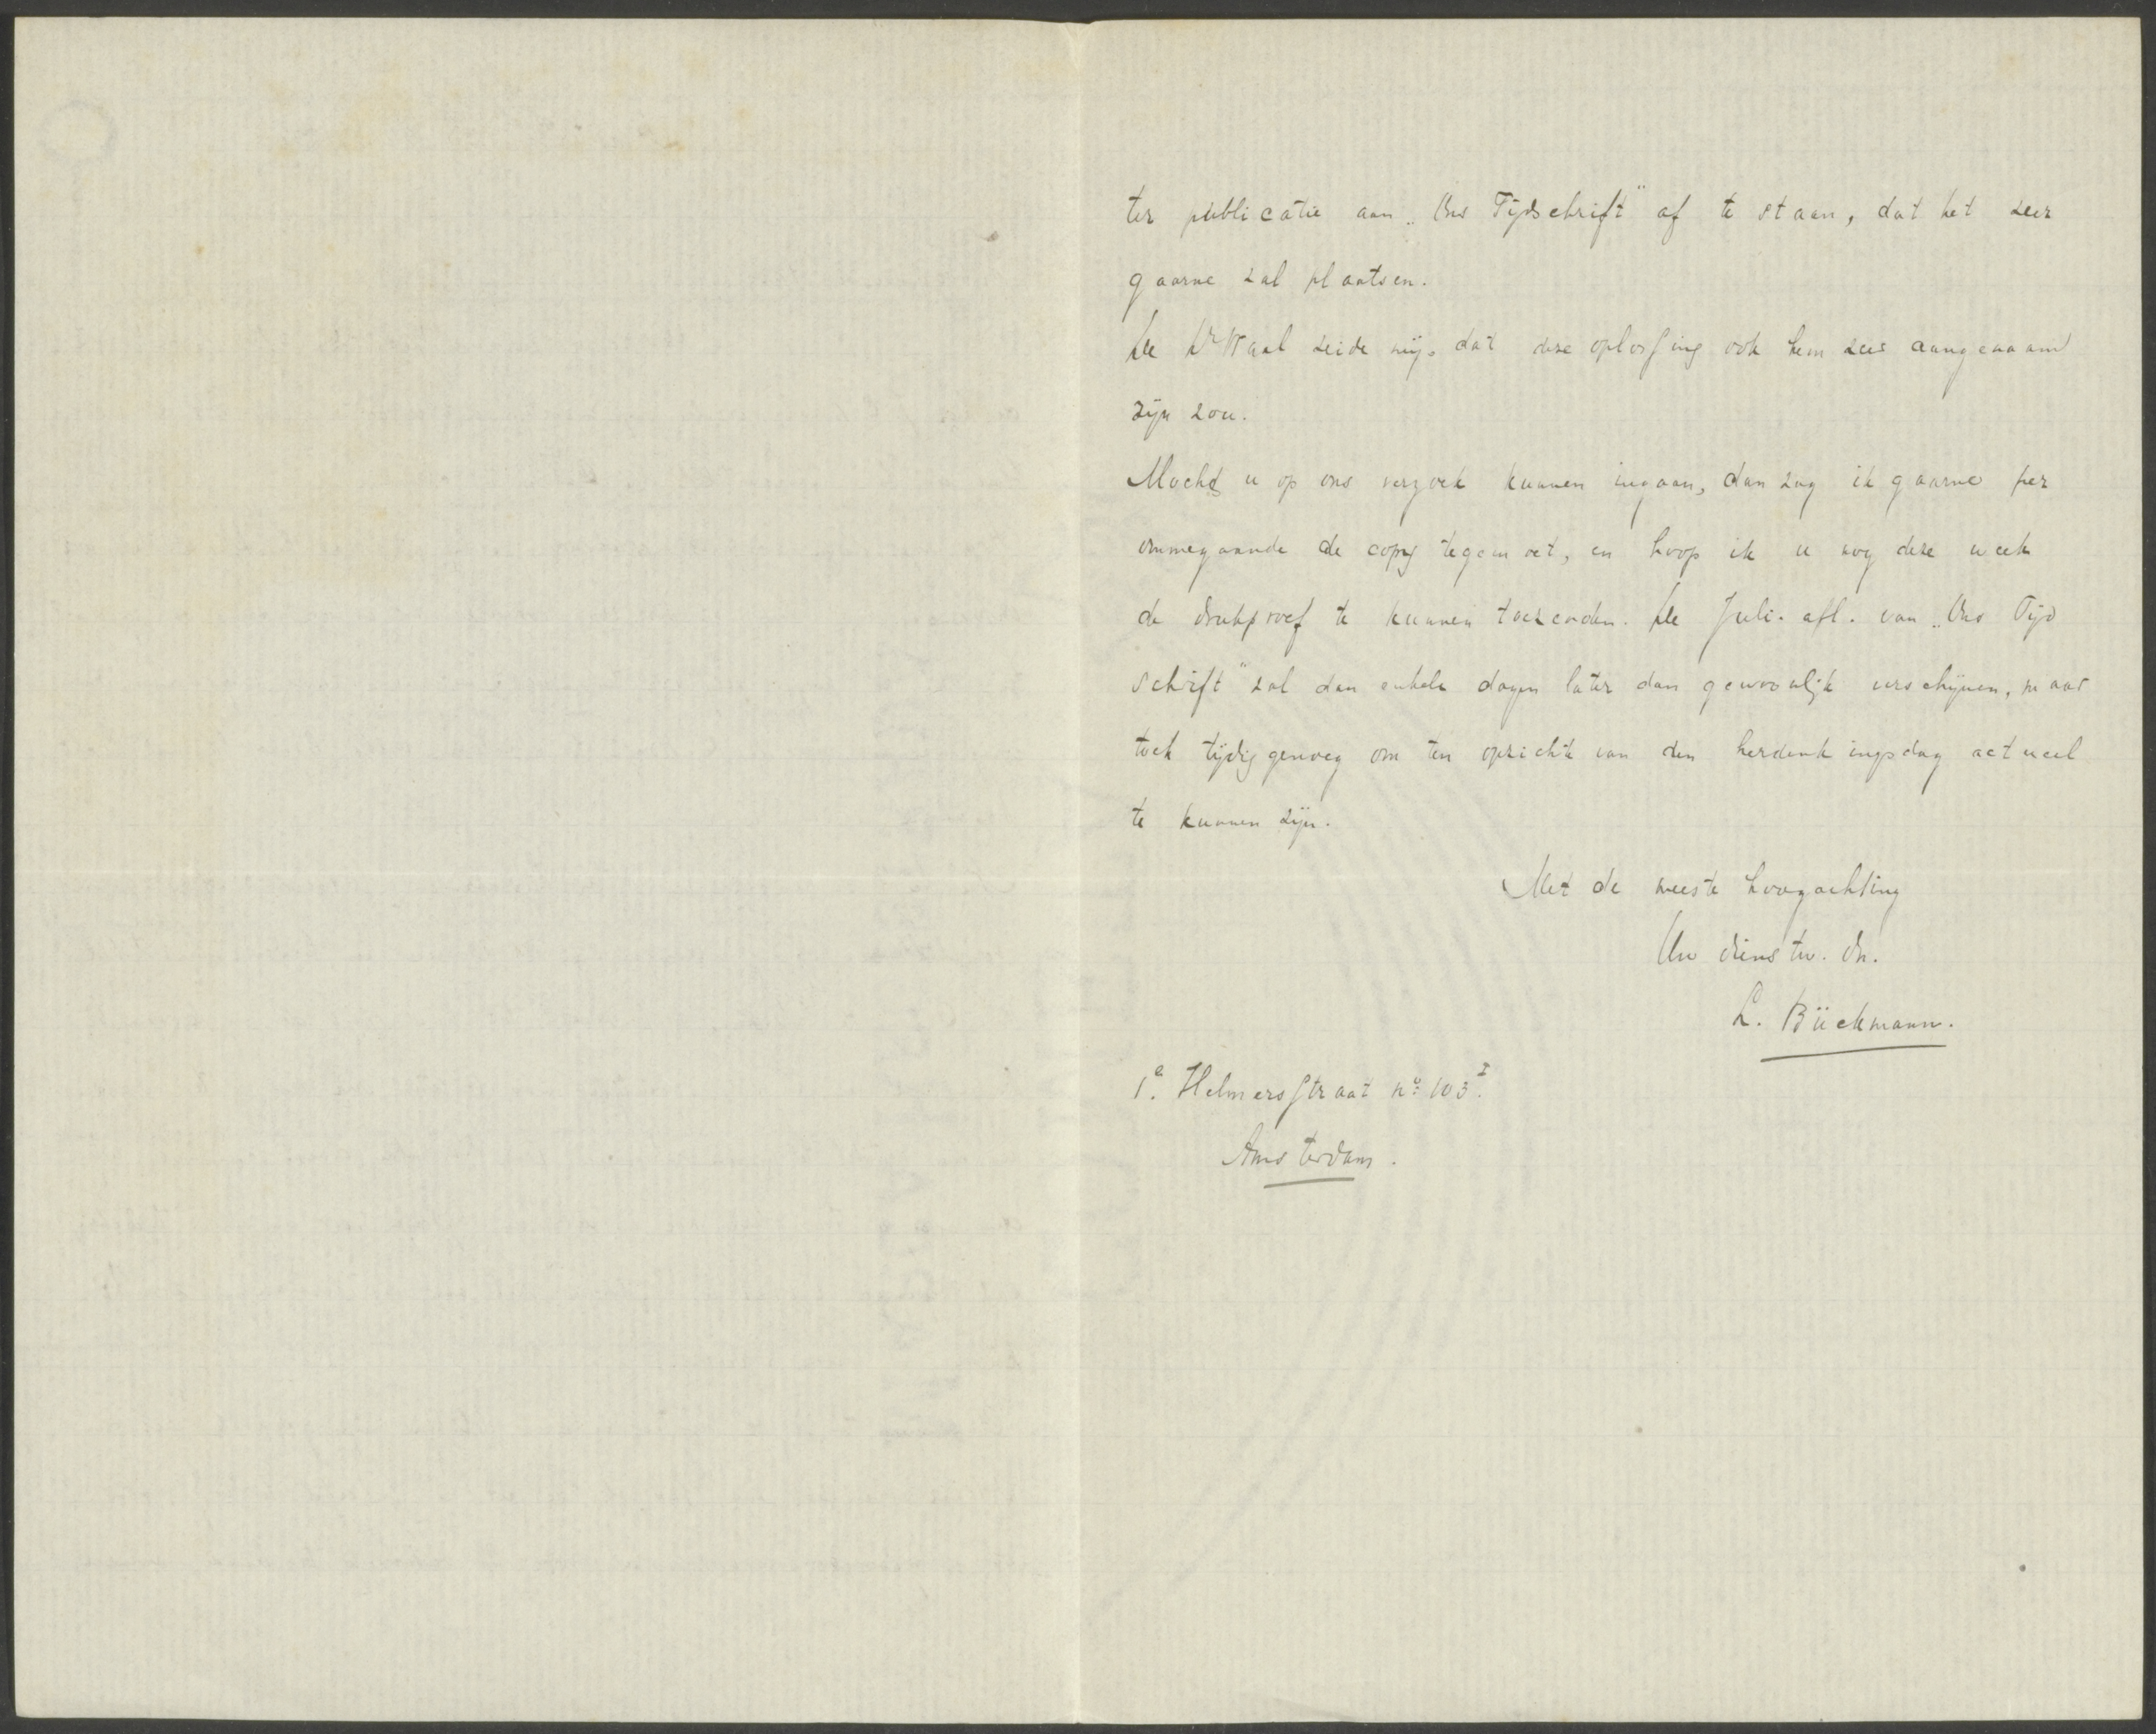 ter publicatie aan „Ons Tijdschrift" af te staan, dat het zeer
gaarne zal plaatsen.
De Hr Waal zeide mij, dat deze oplossing ook hem zeer aangenaam
zijn zou.
Mocht u op ons verzoek kunnen ingaan, dan zag ik gaarne per
ommegaande de copy tegemoet, en hoop ik u nog deze week
de drukproef te kunnen toezenden. De Juli-afl. van „Ons Tijd
schrift" zal dan enkele dagen later dan gewoonlijk verschijnen, maar
toch tijdig genoeg om ten opzichte van den herdenkingsdag actueel
te kunnen zijn.
Met de meeste hoogachting
Uw dienstw. dn.
L. Bückmann.
1e. Helmersstraat no. 103 I.
Amsterdam.